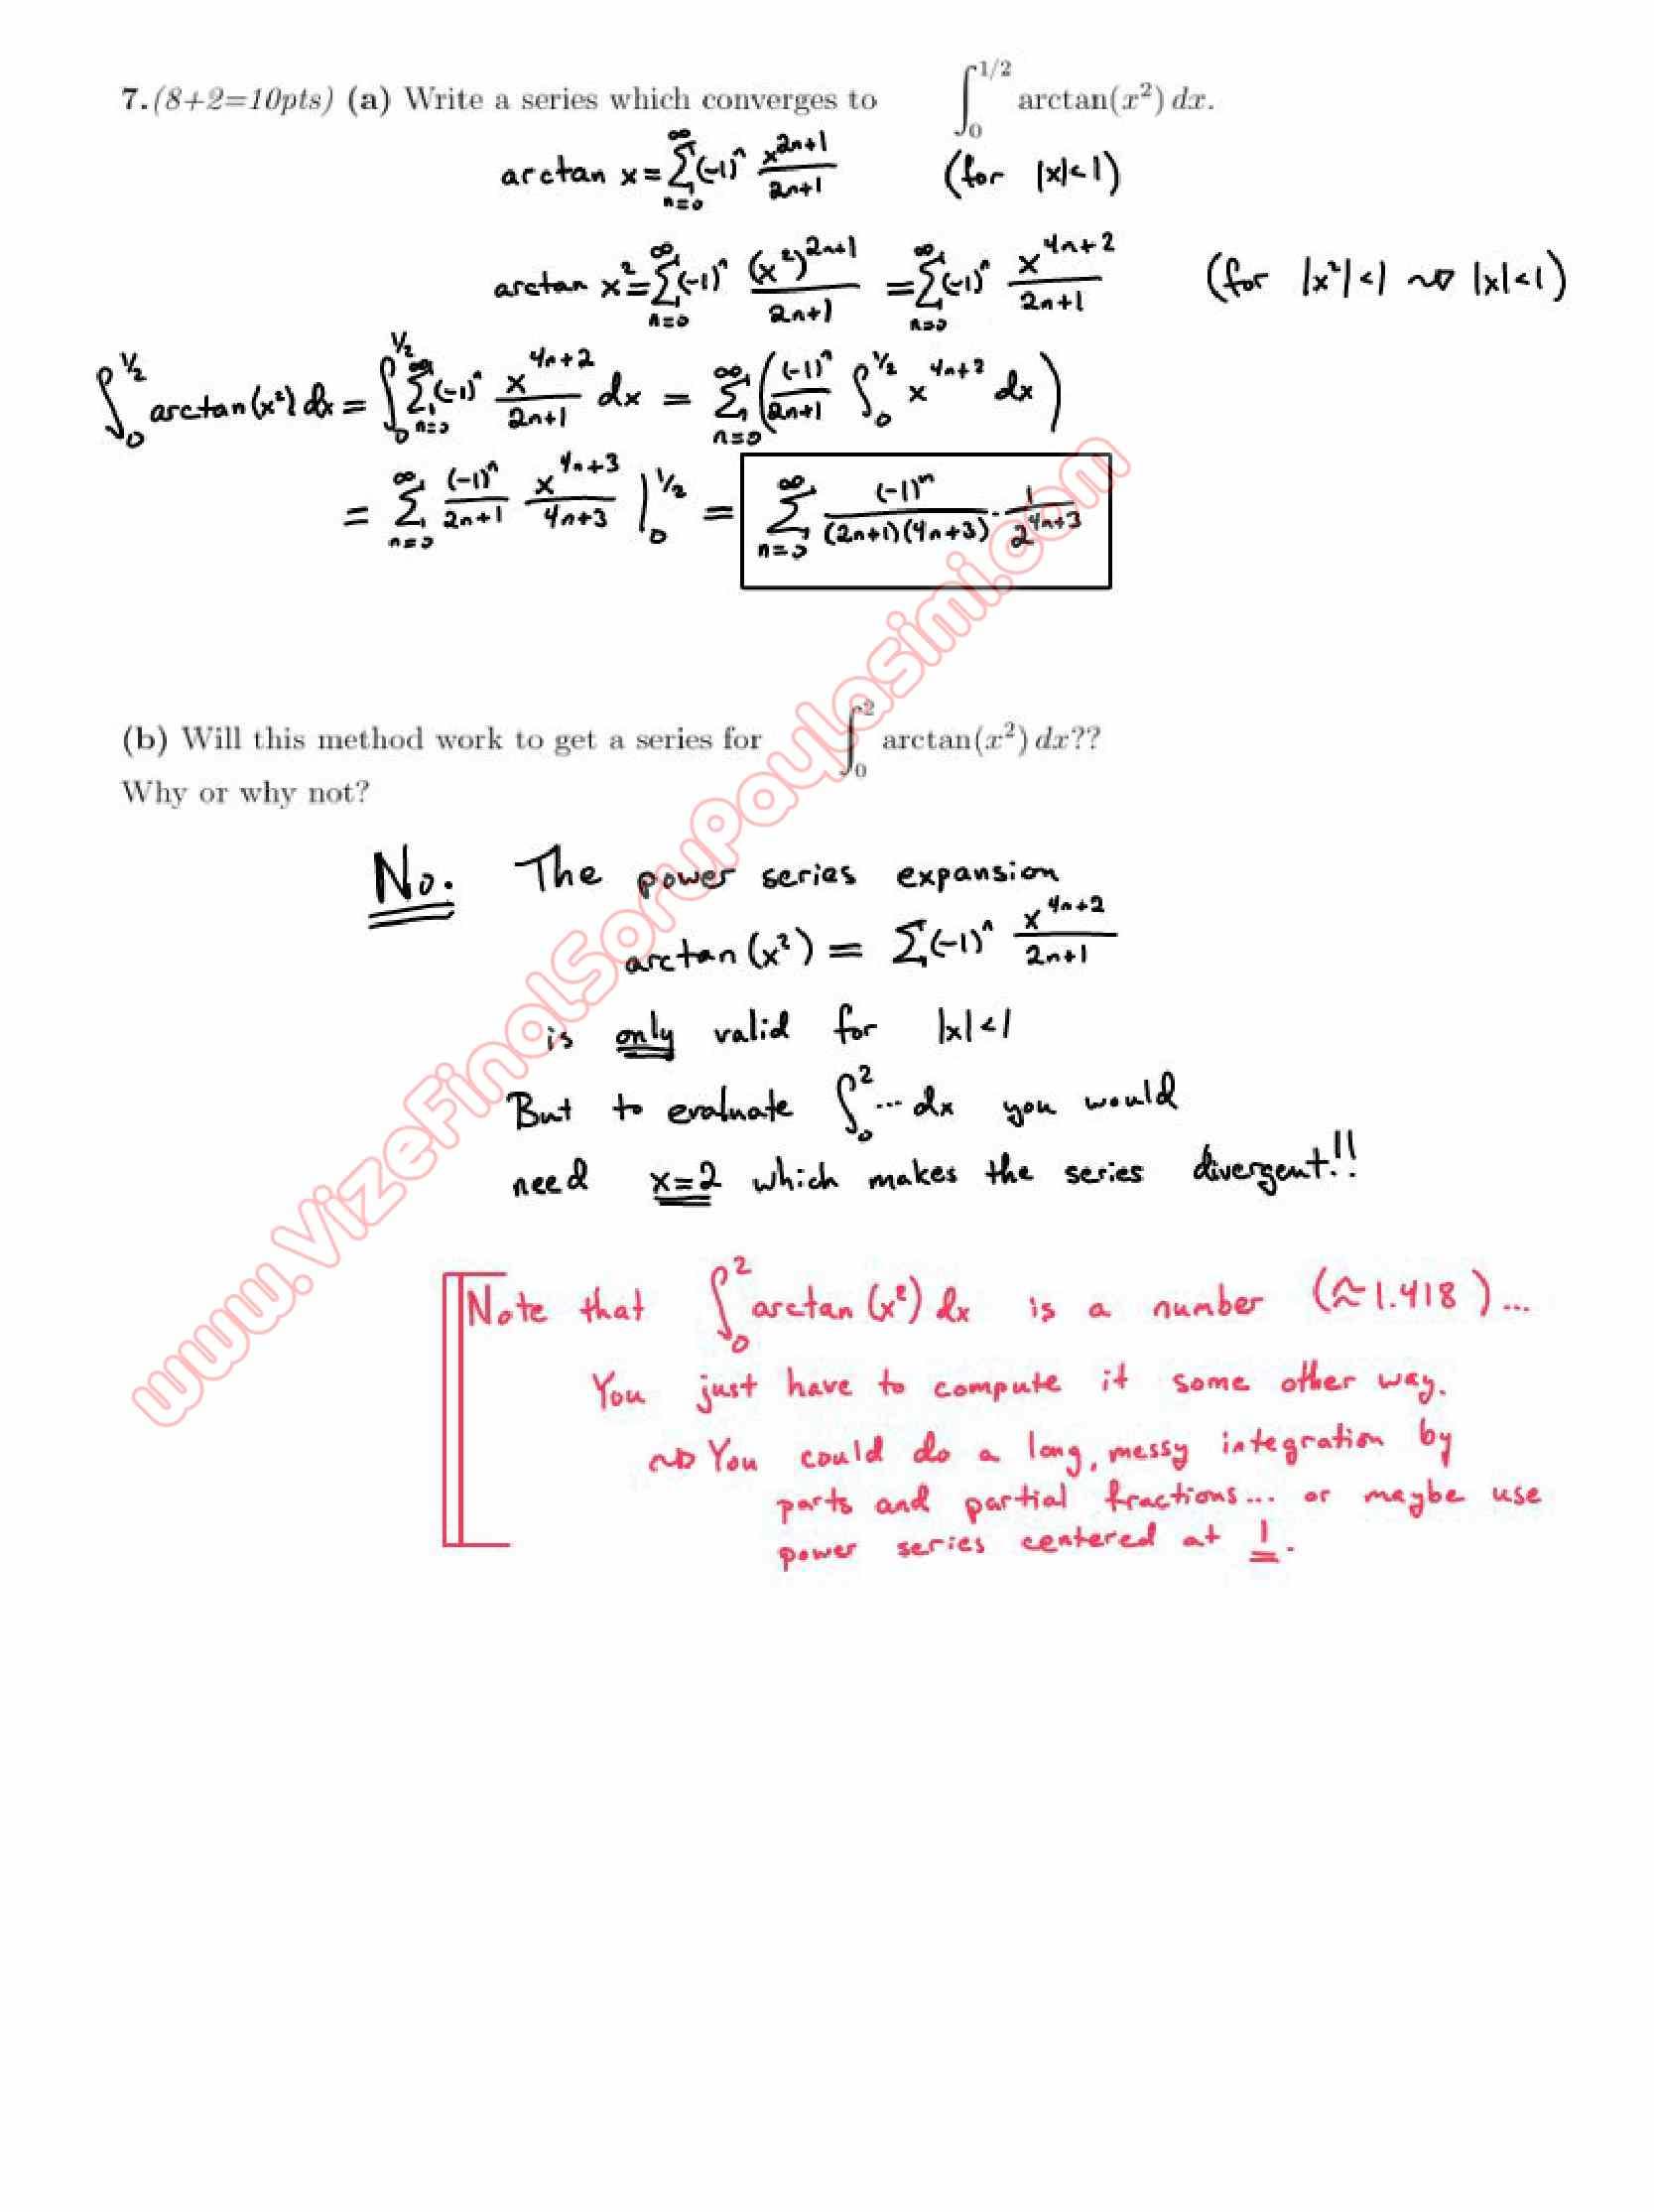 7.(8+2=10pts) (a) Write a series which converges to ∫_0^{1/2} arctan(x²) dx.
arctan x = ∑_{n=0}^∞ (-1)^n x^{2n+1}/(2n+1) (for |x|<1)
arctan x² = ∑_{n=0}^∞ (-1)^n (x²)^{2n+1}/(2n+1) = ∑_{n=0}^∞ (-1)^n x^{4n+2}/(2n+1) (for |x²|<1 ⇝ |x|<1)
∫_0^{1/2} arctan(x²) dx = ∫_0^{1/2} ∑_{n=0}^∞ (-1)^n x^{4n+2}/(2n+1) dx = ∑_{n=0}^∞ ((-1)^n/(2n+1) ∫_0^{1/2} x^{4n+2} dx)
= ∑_{n=0}^∞ (-1)^n/(2n+1) x^{4n+3}/(4n+3) |_0^{1/2} = ∑_{n=0}^∞ (-1)^n/((2n+1)(4n+3)) · 1/2^{4n+3}
(b) Will this method work to get a series for ∫_0^2 arctan(x²) dx??
Why or why not?
No. The power series expansion
arctan(x²) = ∑(-1)^n x^{4n+2}/(2n+1)
is only valid for |x|<1
But to evaluate ∫_0^2 ... dx you would
need x=2 which makes the series divergent!!
Note that ∫_0^2 arctan(x²) dx is a number (≈1.418)...
You just have to compute it some other way.
⇝ You could do a long, messy integration by
parts and partial fractions... or maybe use
power series centered at 1.
www.VizeFinalSoruPaylasimi.com